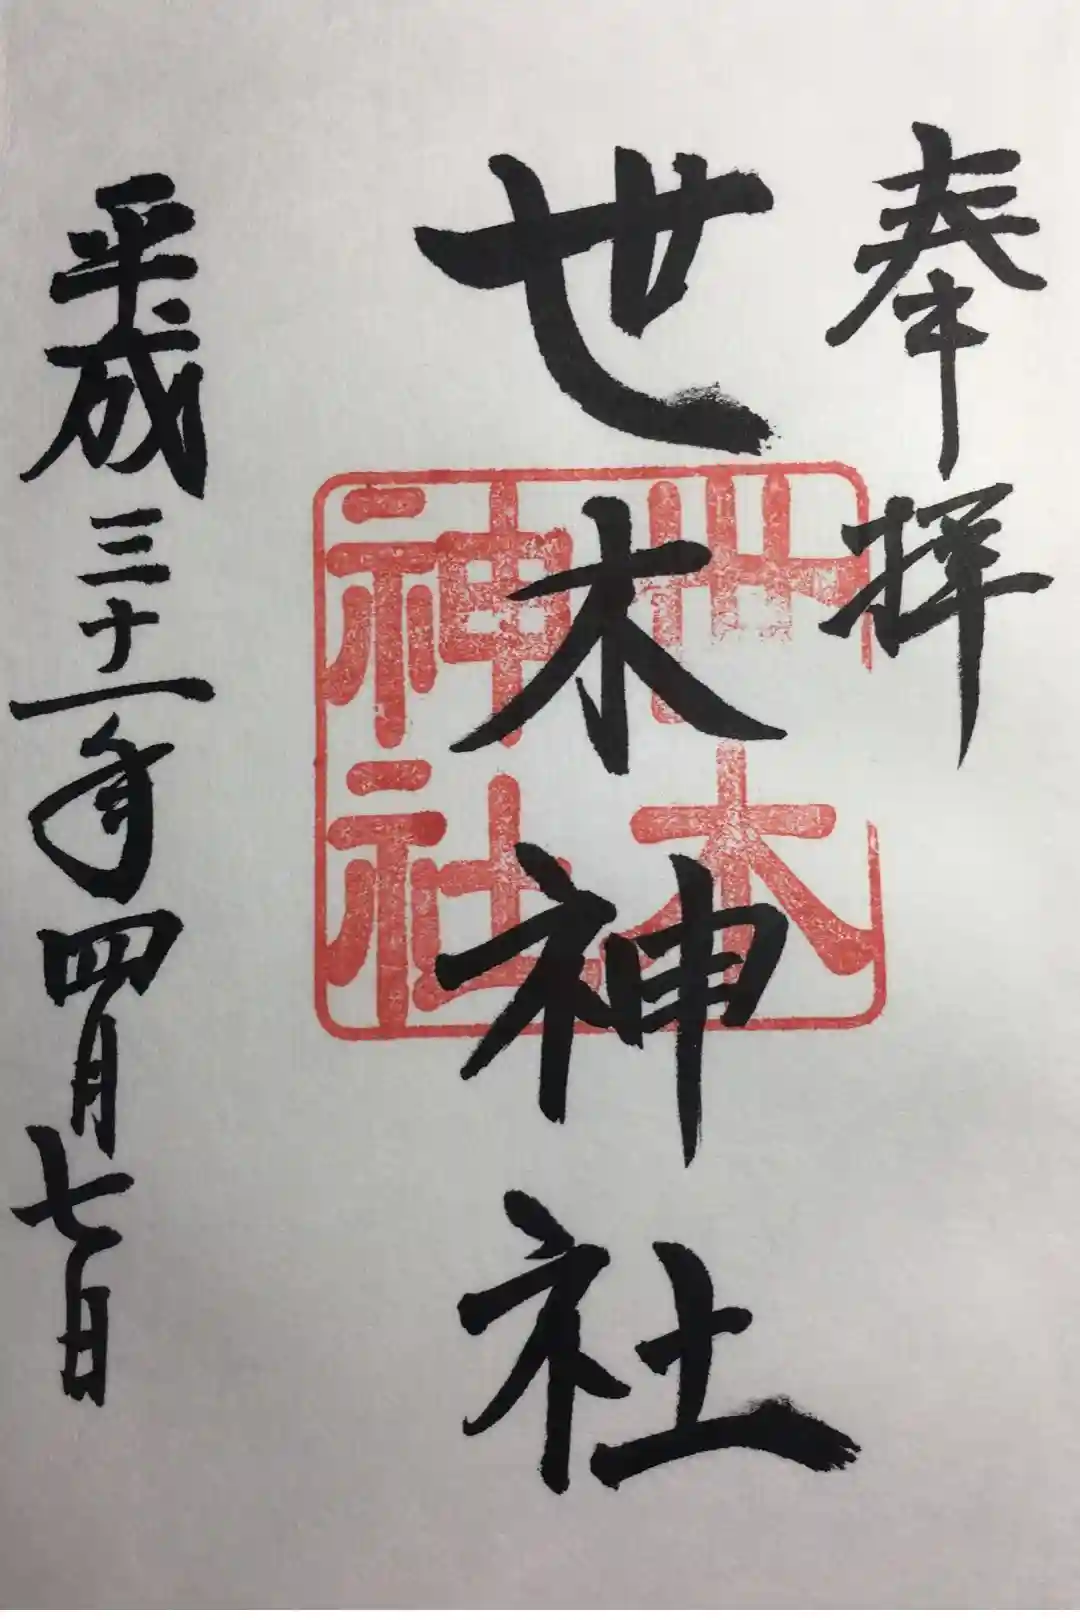 奉拝
世木神社
世木
神社
平成三十一年四月七日